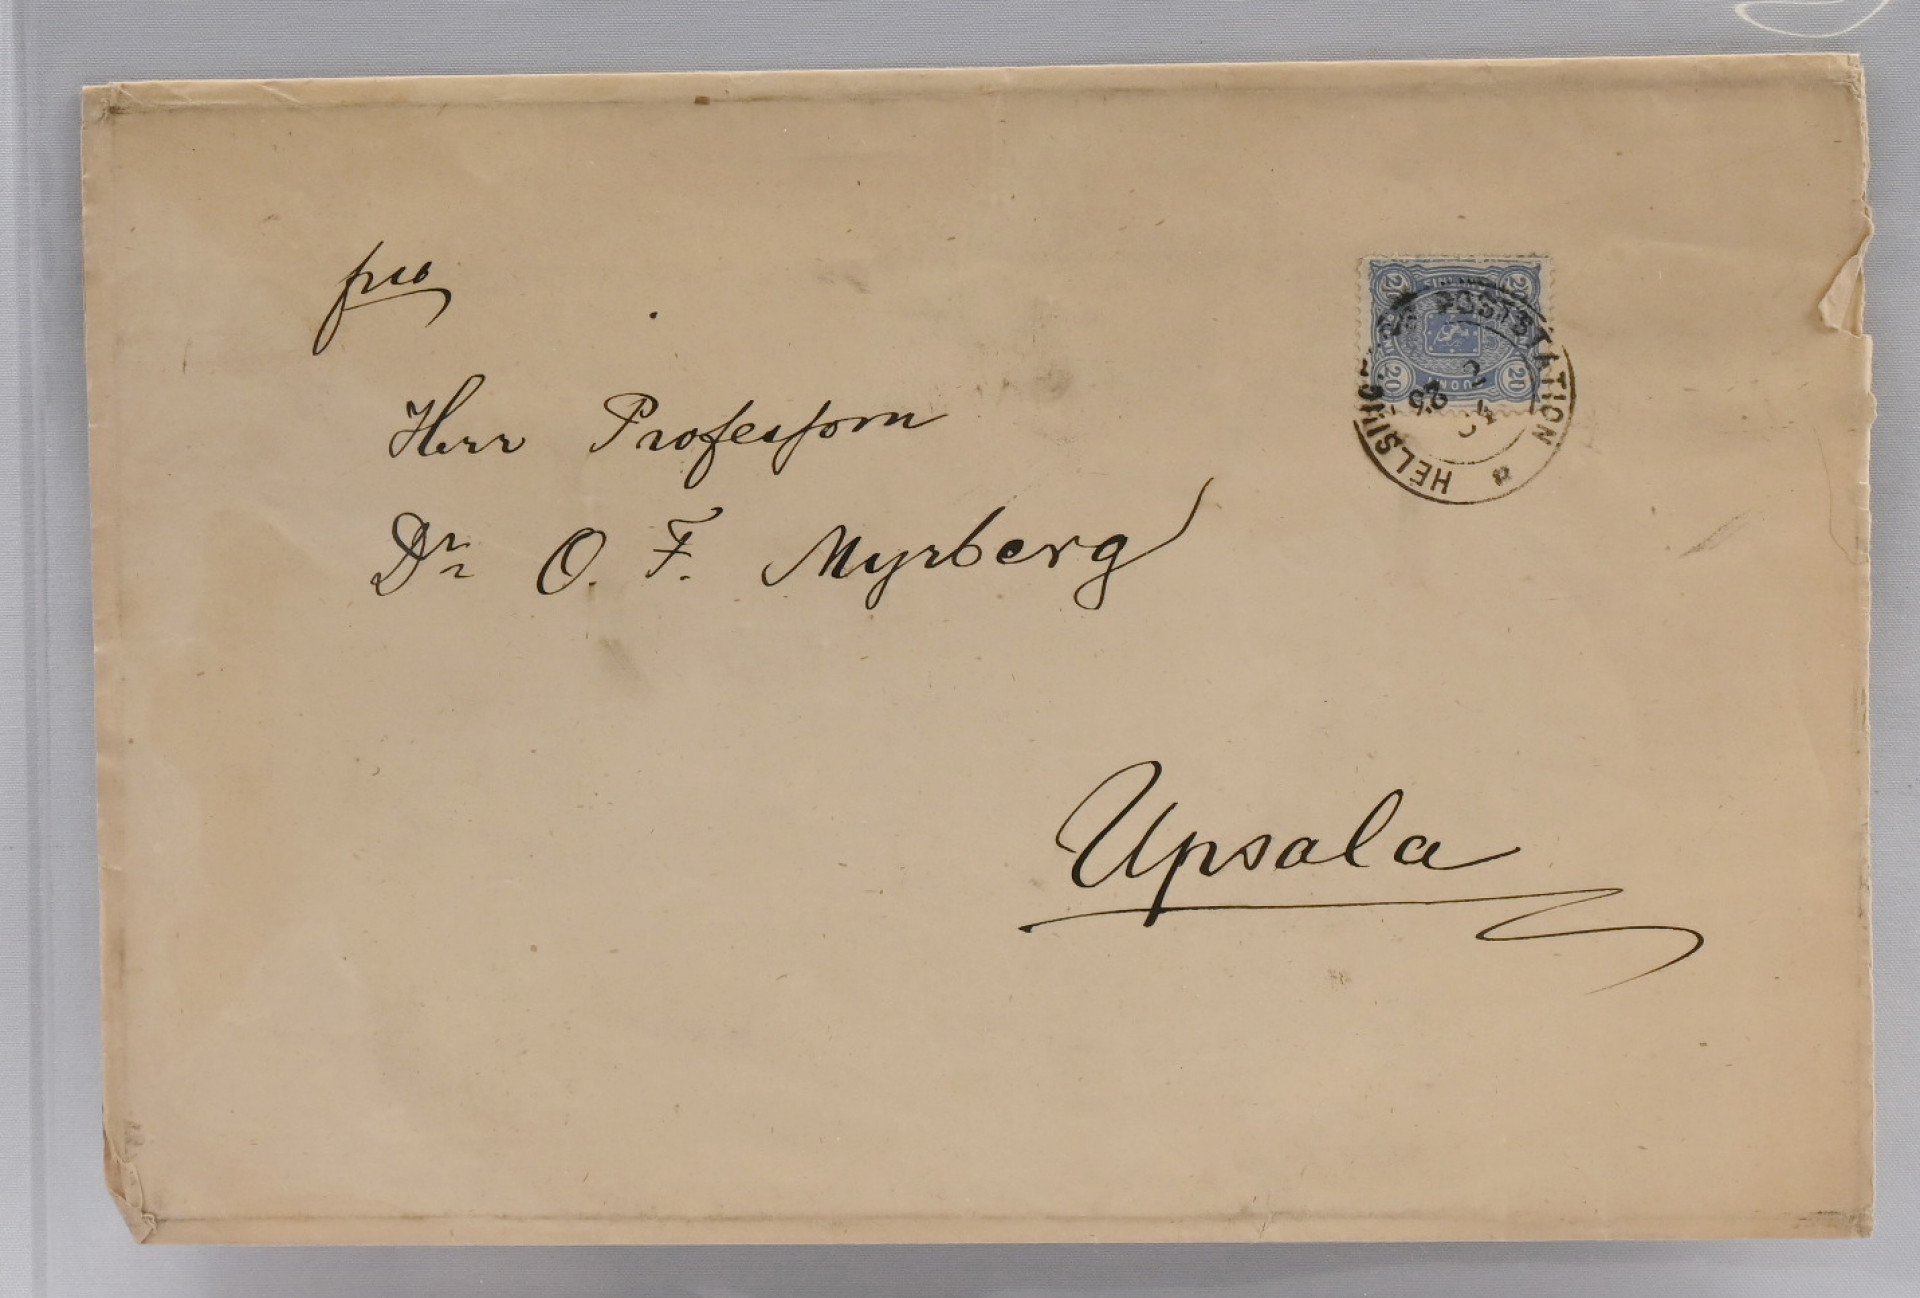 pro
Herr Professorn
Dr O. F. Myrberg
Upsala
20 20
SUOMI
20 20
HELSINGFORS POSTSTATION